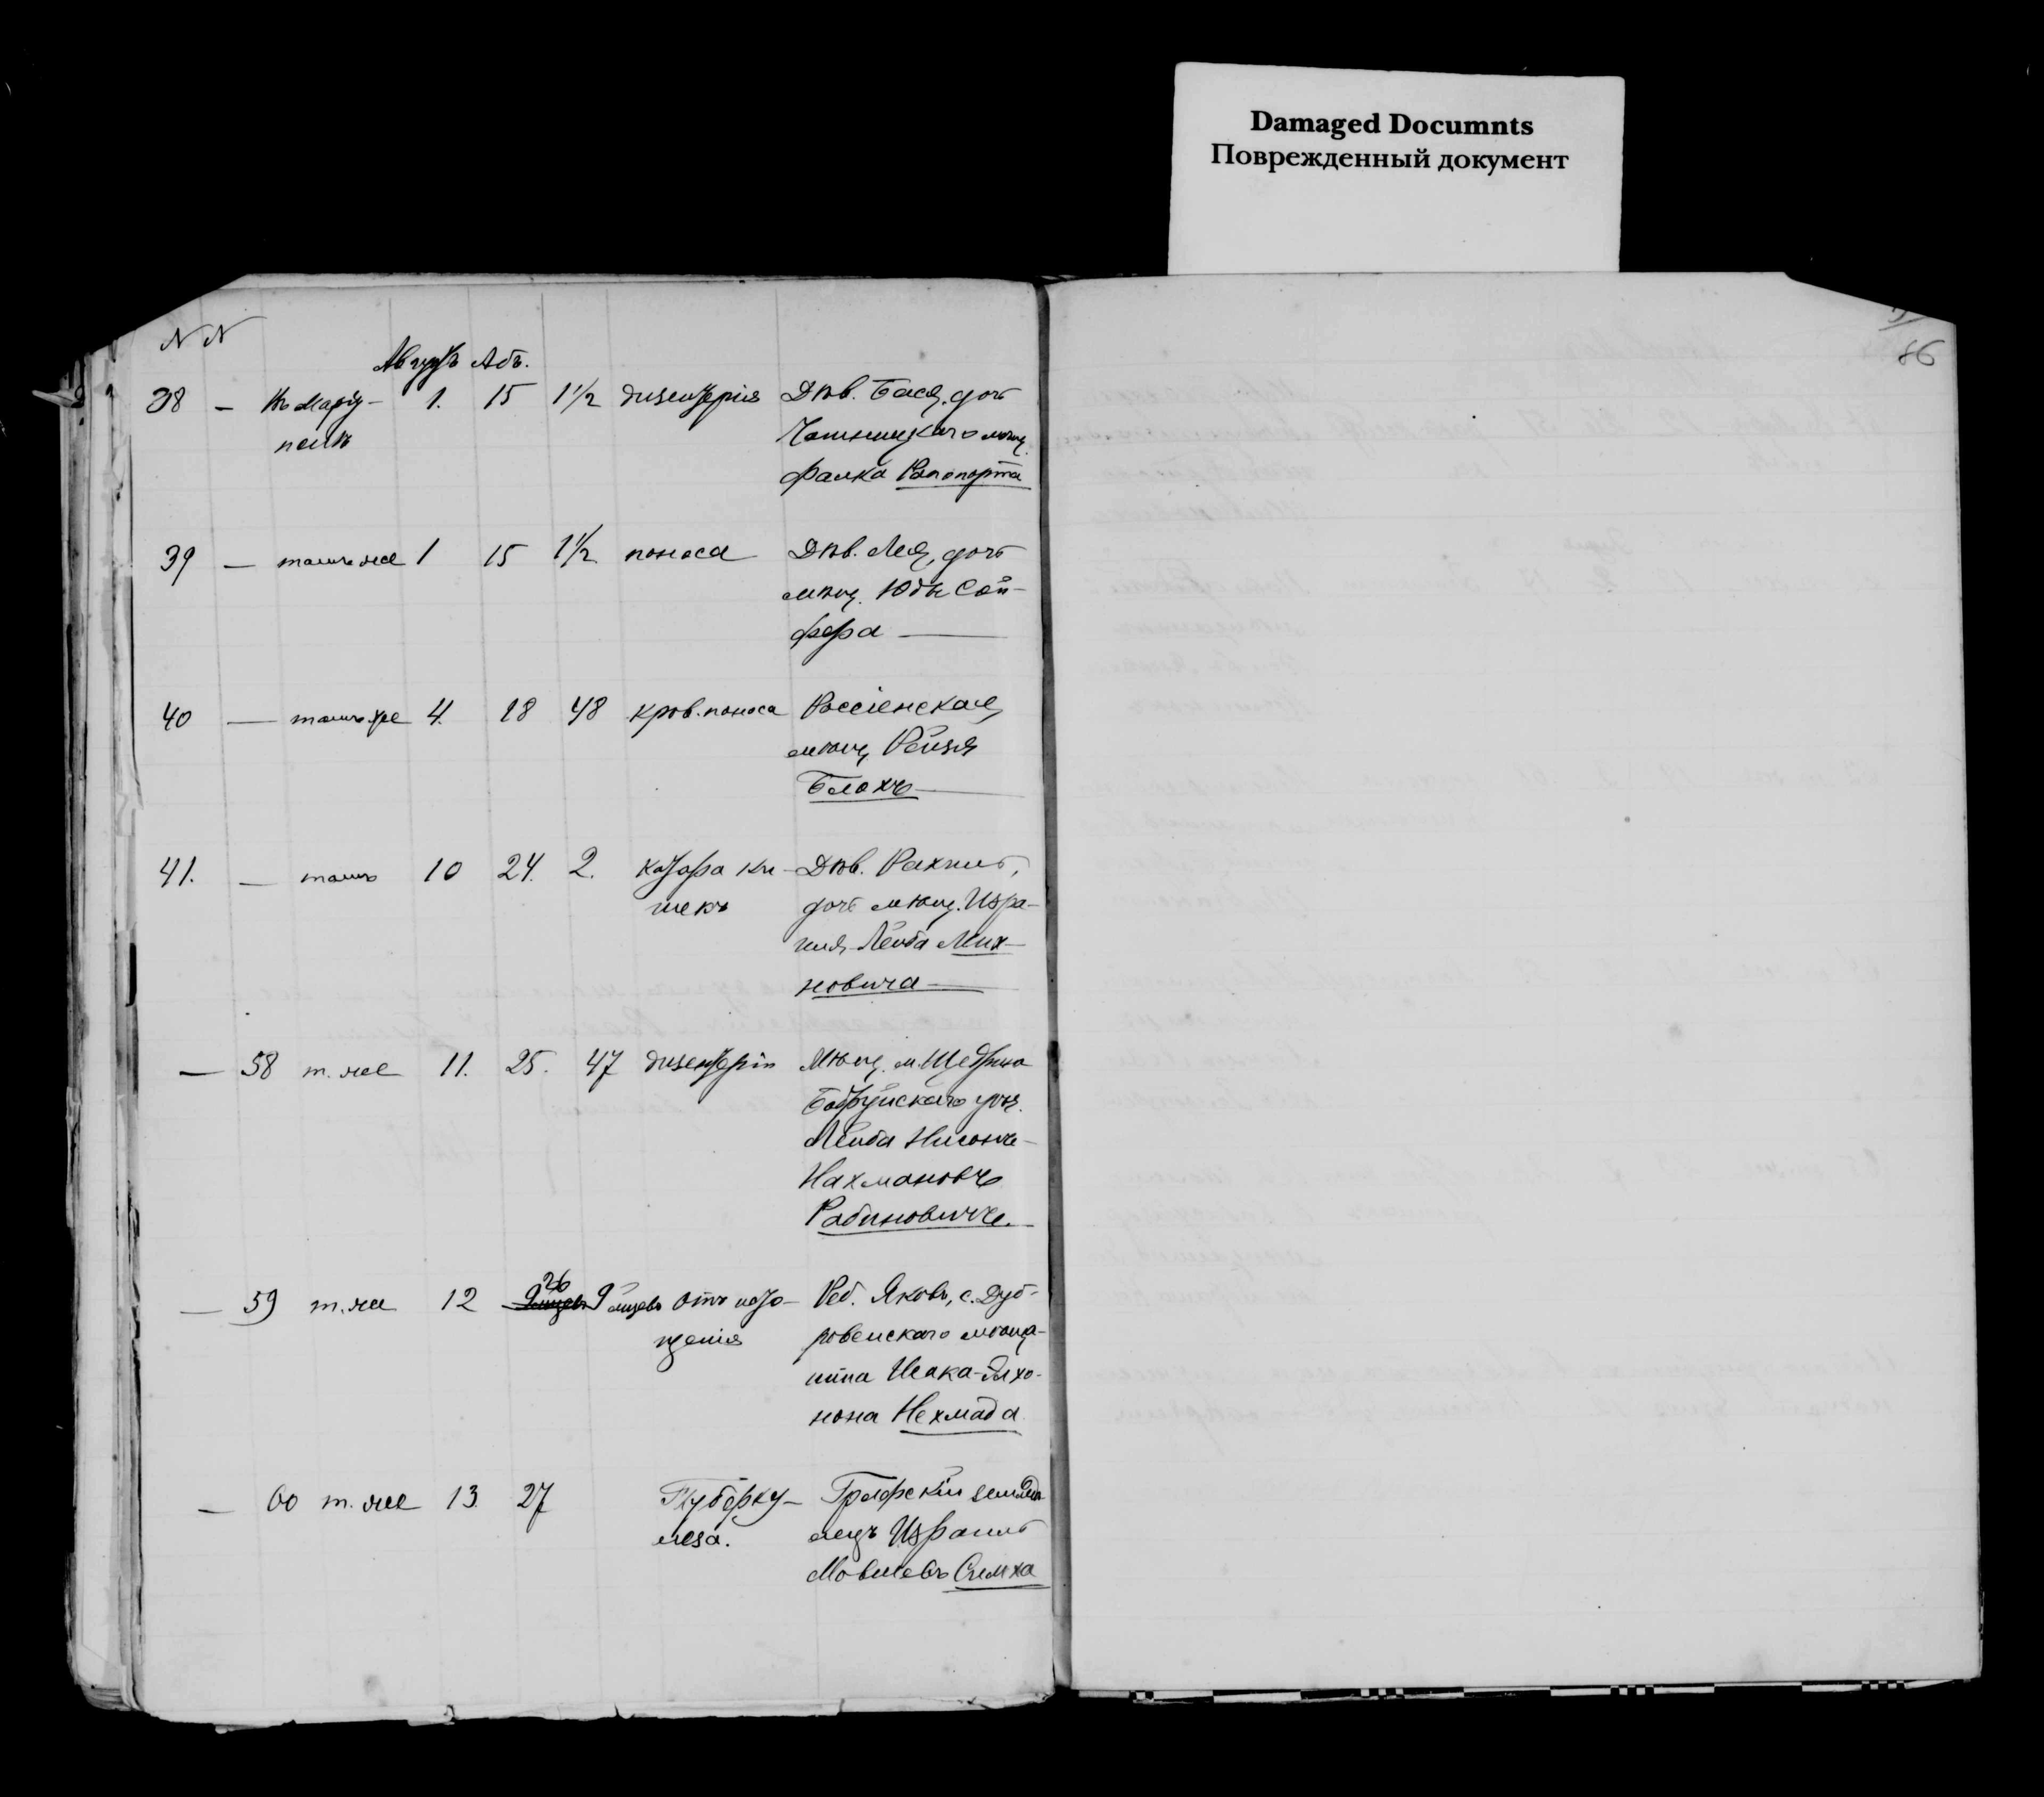 Damaged Documnts
Поврежденный документ
86
N N
Августъ Абъ.
38 — Въ Маріу- 1. 15 1½ дизентерія Дѣв. Бася, дочь
полѣ Чашницкаго мѣщ.
Фалка Рапопорта
39 — тамъ же 1 15 1½ поноса Дѣв. Лея, дочь
мѣщ. Юды Сой-
фера —
40 — тамъ же 4. 18 48 кров. поноса Россіенская
мѣщ. Рейзя
Блохъ —
41. — тамъ 10 24. 2. катара ки- Дѣв. Рахиль,
шекъ дочь мѣщ. Изра-
иля-Лейба Мих-
новича —
— 58 т. же 11. 25. 47 дизентеріи Мѣщ. м. Щедрина
Бобруйскаго уѣз.
Лейба Нисонъ-
Нахмановъ
Рабиновичъ.
— 59 т. же 12 26 9 мѣсяцевъ Отъ исто- Реб. Яковъ, с. Дуб-
щенія ровенскаго мѣща-
нина Исака-Элхо-
нона Нехмада
— 60 т. же 13. 27 Туберку- Графскій земледѣ-
леза. лецъ Израиль
Мовшевъ Симха